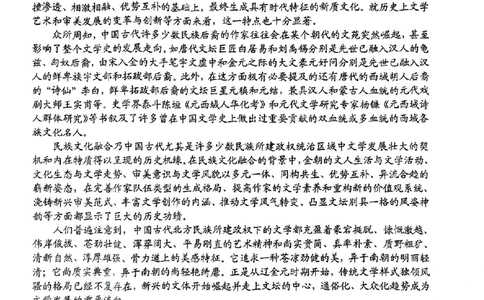 撞渗透、相激相融、优势互补的基础上,最终生成具有时代特征的新质文化。就历史上文学
艺术和审美发展的变革与创新等方面来看,这一特点也十分显著。
众所周知,中国古代许多少数民族后裔的作家往往会在某个朝代的文苑突然崛起,甚至
影响了整个文学史的发展走向,如唐代文坛巨匠白居易和刘禹锡分别是先世已融入汉人的龟
兹、匈奴后裔,由宋入金的大手笔宇文虚中和金元之际的大文豪元好问分别是先世已融入汉
人的鲜卑族宇文部和拓跋部后裔。此外,在这方面颇有必要提及的还有唐代的西域胡人后裔
的“诗仙”李白,鲜卑拓跋部后裔的文坛巨星元稹和元结,兼具汉人和蒙古人血统的元代戏
剧大师王实甫等。史学界泰斗陈垣《元西域人华化考》和元代文学研究专家杨镰《元西域诗
人群体研究》等书叙及了许多曾在中国文学史上做出过重要贡献的双血统或多血统的西域各
族文化名人。
民族文化融合乃中国古代尤其是许多少数民族所建政权统治区域中文学发展壮大的契
机和内在特质得以呈现的历史机缘。在民族文化融合的背景中,金朝的文人生活与文学活动、
文化生态与文学走势、审美意识与文学风貌以多元一体、同构共生、优势互补、异流合趋的
崭新姿态,在完善作家队伍类型的生成格局、提高作家的文学素养和重构新的价值观系统、
浇铸新兴审美范式、丰富文学创作的内涵、推动文学风气转变、凸显文坛别具一格的风姿神
韵等方面都显示了巨大的历史功绩。
人们普遍注意到,中国古代北方民族所建政权下的文学都充盈着豪宕挺脱、慷慨激越、
伟岸倨拔、苍劲壮健、浑莽阔大、平易刚直的艺术精神和尚实贵简、真率朴素、质野粗犷、
清新自然、浑厚雄强、骨力遒上的美感特征。它追求一种苍凉劲健的美,异于南朝的明丽轻
清;它尚质实典重,异于南朝的尚轻艳绮靡。正是从辽金元时期开始,传统文学样式独领风
骚的格局已经不复存在,新兴的文体开始崛起并走上文坛的中心,通俗化、大众化趋势成为